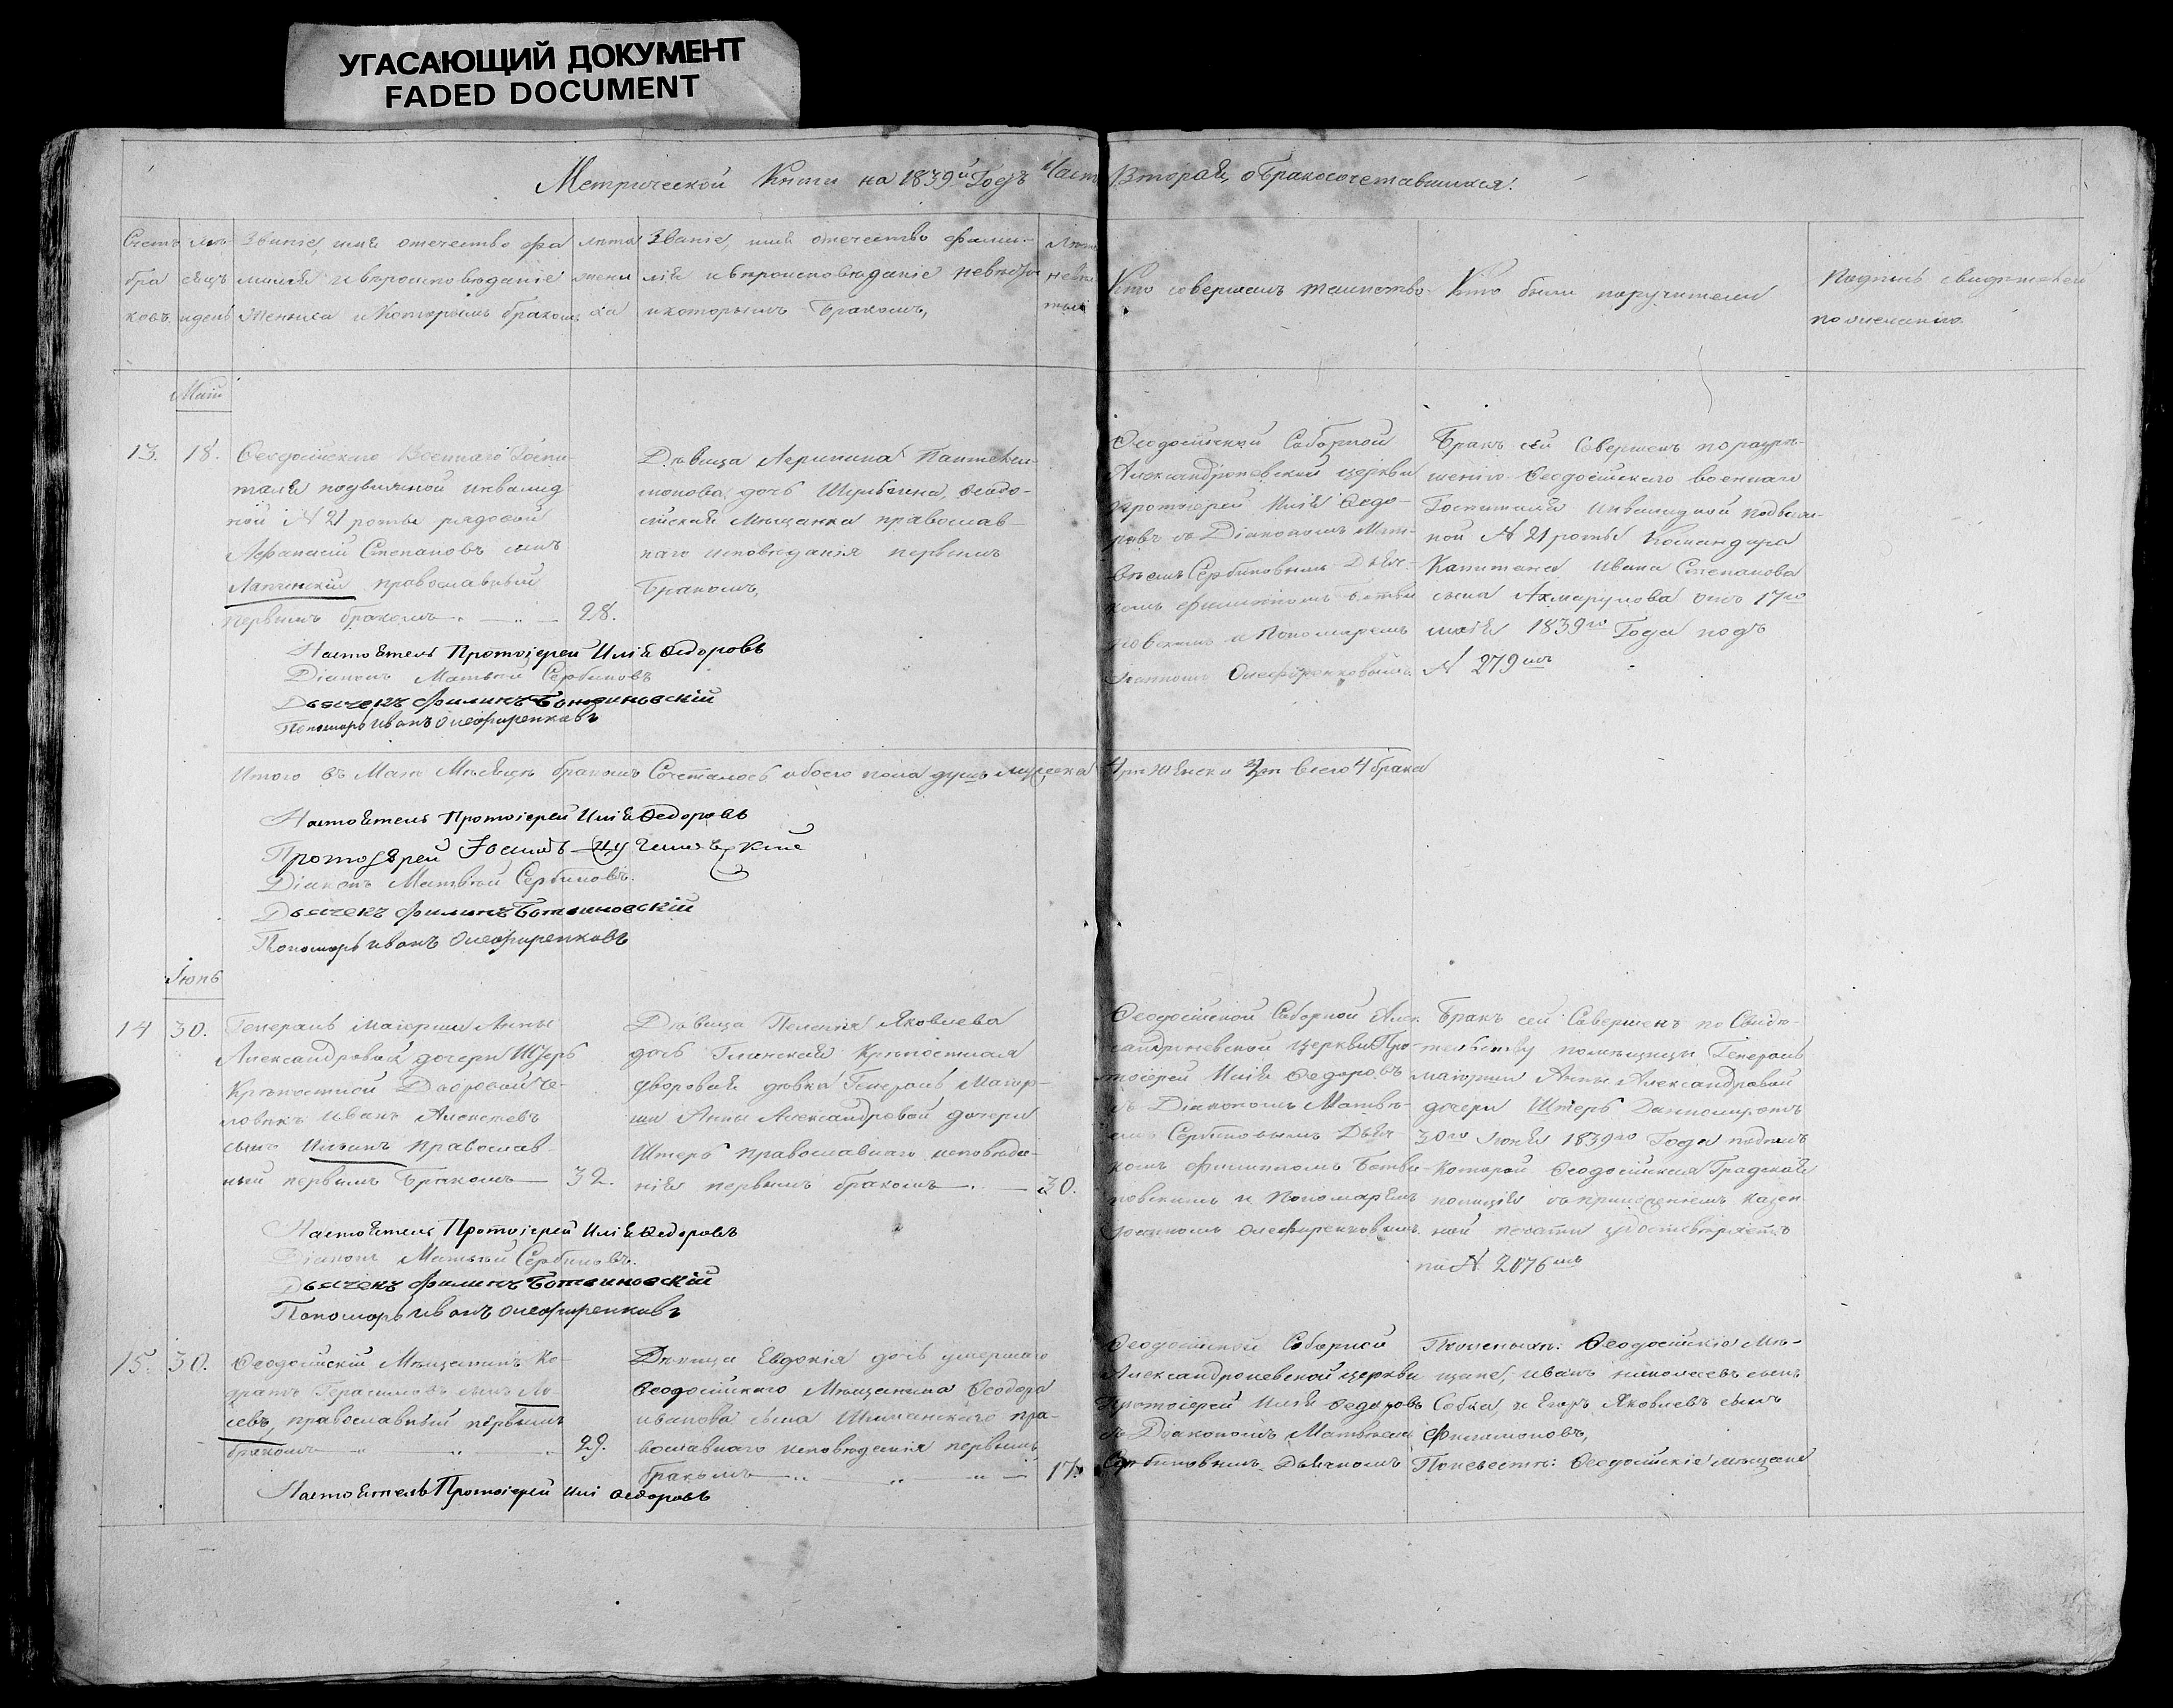 УГАСАЮЩИЙ ДОКУМЕНТ
FADED DOCUMENT
Метрической Книги на 1839й Годъ Часть Вторая, о бракосочетавшихся.
Счетъ браковъ
Мѣсяцъ и день
Званіе, имя отечество фамилія и вѣроисповѣданіе Жениха и Которымъ бракомъ
лѣта жениха
Званіе, имя отечество фамилія и вѣроисповѣданіе невѣсты и которымъ Бракомъ,
Лѣта невѣсты
Кто совершалъ таинство
Кто были поручители
Подпись свидетелей по желанію
Май
13. 18.
Ѳеодосійскаго Военнаго Госпи-
таля подвижной инвалид
ной № 21 роты рядовой
Афанасій Степановъ сынъ
православный
первымъ бракомъ 28.
Дѣвица Агрипина Пантелеи-
монова дочь Шульгина, Ѳеодо-
сійская Мѣщанка православ-
наго исповѣданія первымъ
Бракомъ,
Ѳеодосійской Соборной
Александроневской церкви
Протоіерей Илія Ѳедо-
ровъ съ Діакономъ Мат-
вѣемъ Сербиновымъ Дьяч-
комъ Филипомъ Ботви
новскимъ и Пономаремъ
Іоанномъ Олефиренковымъ.
Бракъ сей Совершенъ по разрѣ-
шенію Ѳеодосійскаго военнаго
Госпиталя Инвалидной подвиж-
ной № 21 роты Командира
Капитана Ивана Степанова
сына отъ 17го
маія 1839го Года подъ
№ 279мъ
Настоятель Протоіерей Илія Ѳедоровъ
Діаконъ Матвѣй Сербиновъ
Дьячекъ Филипъ Ботвиновскій
Пономарь Иванъ Олефиренковъ
Итого въ Маѣ Мѣсяцѣ бракомъ Сочеталось обоего пола душъ мужеска 4 женска 4 всего 4 брака
Настоятель Протоіерей Илія Ѳедоровъ
Протоіерей
Діаконъ Матвѣй Сербиновъ.
Дьячекъ Филипъ Ботвиновскій
Пономарь Иванъ Олефиренковъ
Іюнь
14 30.
Генералъ маіорши Анны
Александровой дочери Штеръ
Крѣпостной Дворовой че-
ловѣкъ Иванъ Алексѣевъ
сынъ Ильинъ Православ-
ный первымъ Бракомъ 32.
Дѣвица Пелагія Яковлева
дочь Глинская Крѣпостная
дворовая дѣвка Генералъ Маіор-
ши Анны Александровой дочери
Штеръ православнаго исповѣда-
нія первымъ бракомъ 30.
Ѳеодосійской Соборной Алек
сандроневской церкви Про-
тоіерей Илія Ѳедоровъ
съ Діакономъ Матвѣ-
емъ Сербиновымъ Дьяч
комъ Филипомъ Ботви-
новскимъ и Пономаремъ
Іоанномъ Олефиренковымъ.
Бракъ сей Совершенъ по Свидѣ-
тельству помѣщицы Генералъ
маіорши Анны Александровой
дочери Штеръ Данному отъ
30го Іюня 1839го Года подпись
Которой Ѳеодосійская Градская
полиція съ приложеніемъ казен
ной печати удостовѣряетъ
по № 2076мъ
Настоятель Протоіерей Илія Ѳедоровъ
Діаконъ Матвѣй Сербиновъ.
Дьячекъ Филипъ Ботвиновскій
Пономарь Иванъ Олефиренковъ
15. 30.
Ѳеодосійскій Мѣщанинъ Ко-
дратъ Герасимовъ сынъ
православный первымъ
бракомъ 29.
Дѣвица Евдокія дочь умершаго
Ѳеодосійскаго Мѣщанина Ѳеодора
Иванова сына пра-
вославнаго исповѣданія первымъ
бракомъ 17.
Ѳеодосійской Соборной
Александроневской церкви
Протоіерей Илія Ѳедоровъ
съ Діакономъ Матвѣемъ
Сербиновымъ Дьячкомъ
По женихѣ: Ѳеодосійскіе Мѣ-
щане, Иванъ Николаевъ сынъ
Собка, и Егоръ Яковлевъ сынъ
Филимоновъ,
По невѣстѣ: Ѳеодосійскіе мѣщане
Настоятель Протоіерей Илі Ѳедоровъ